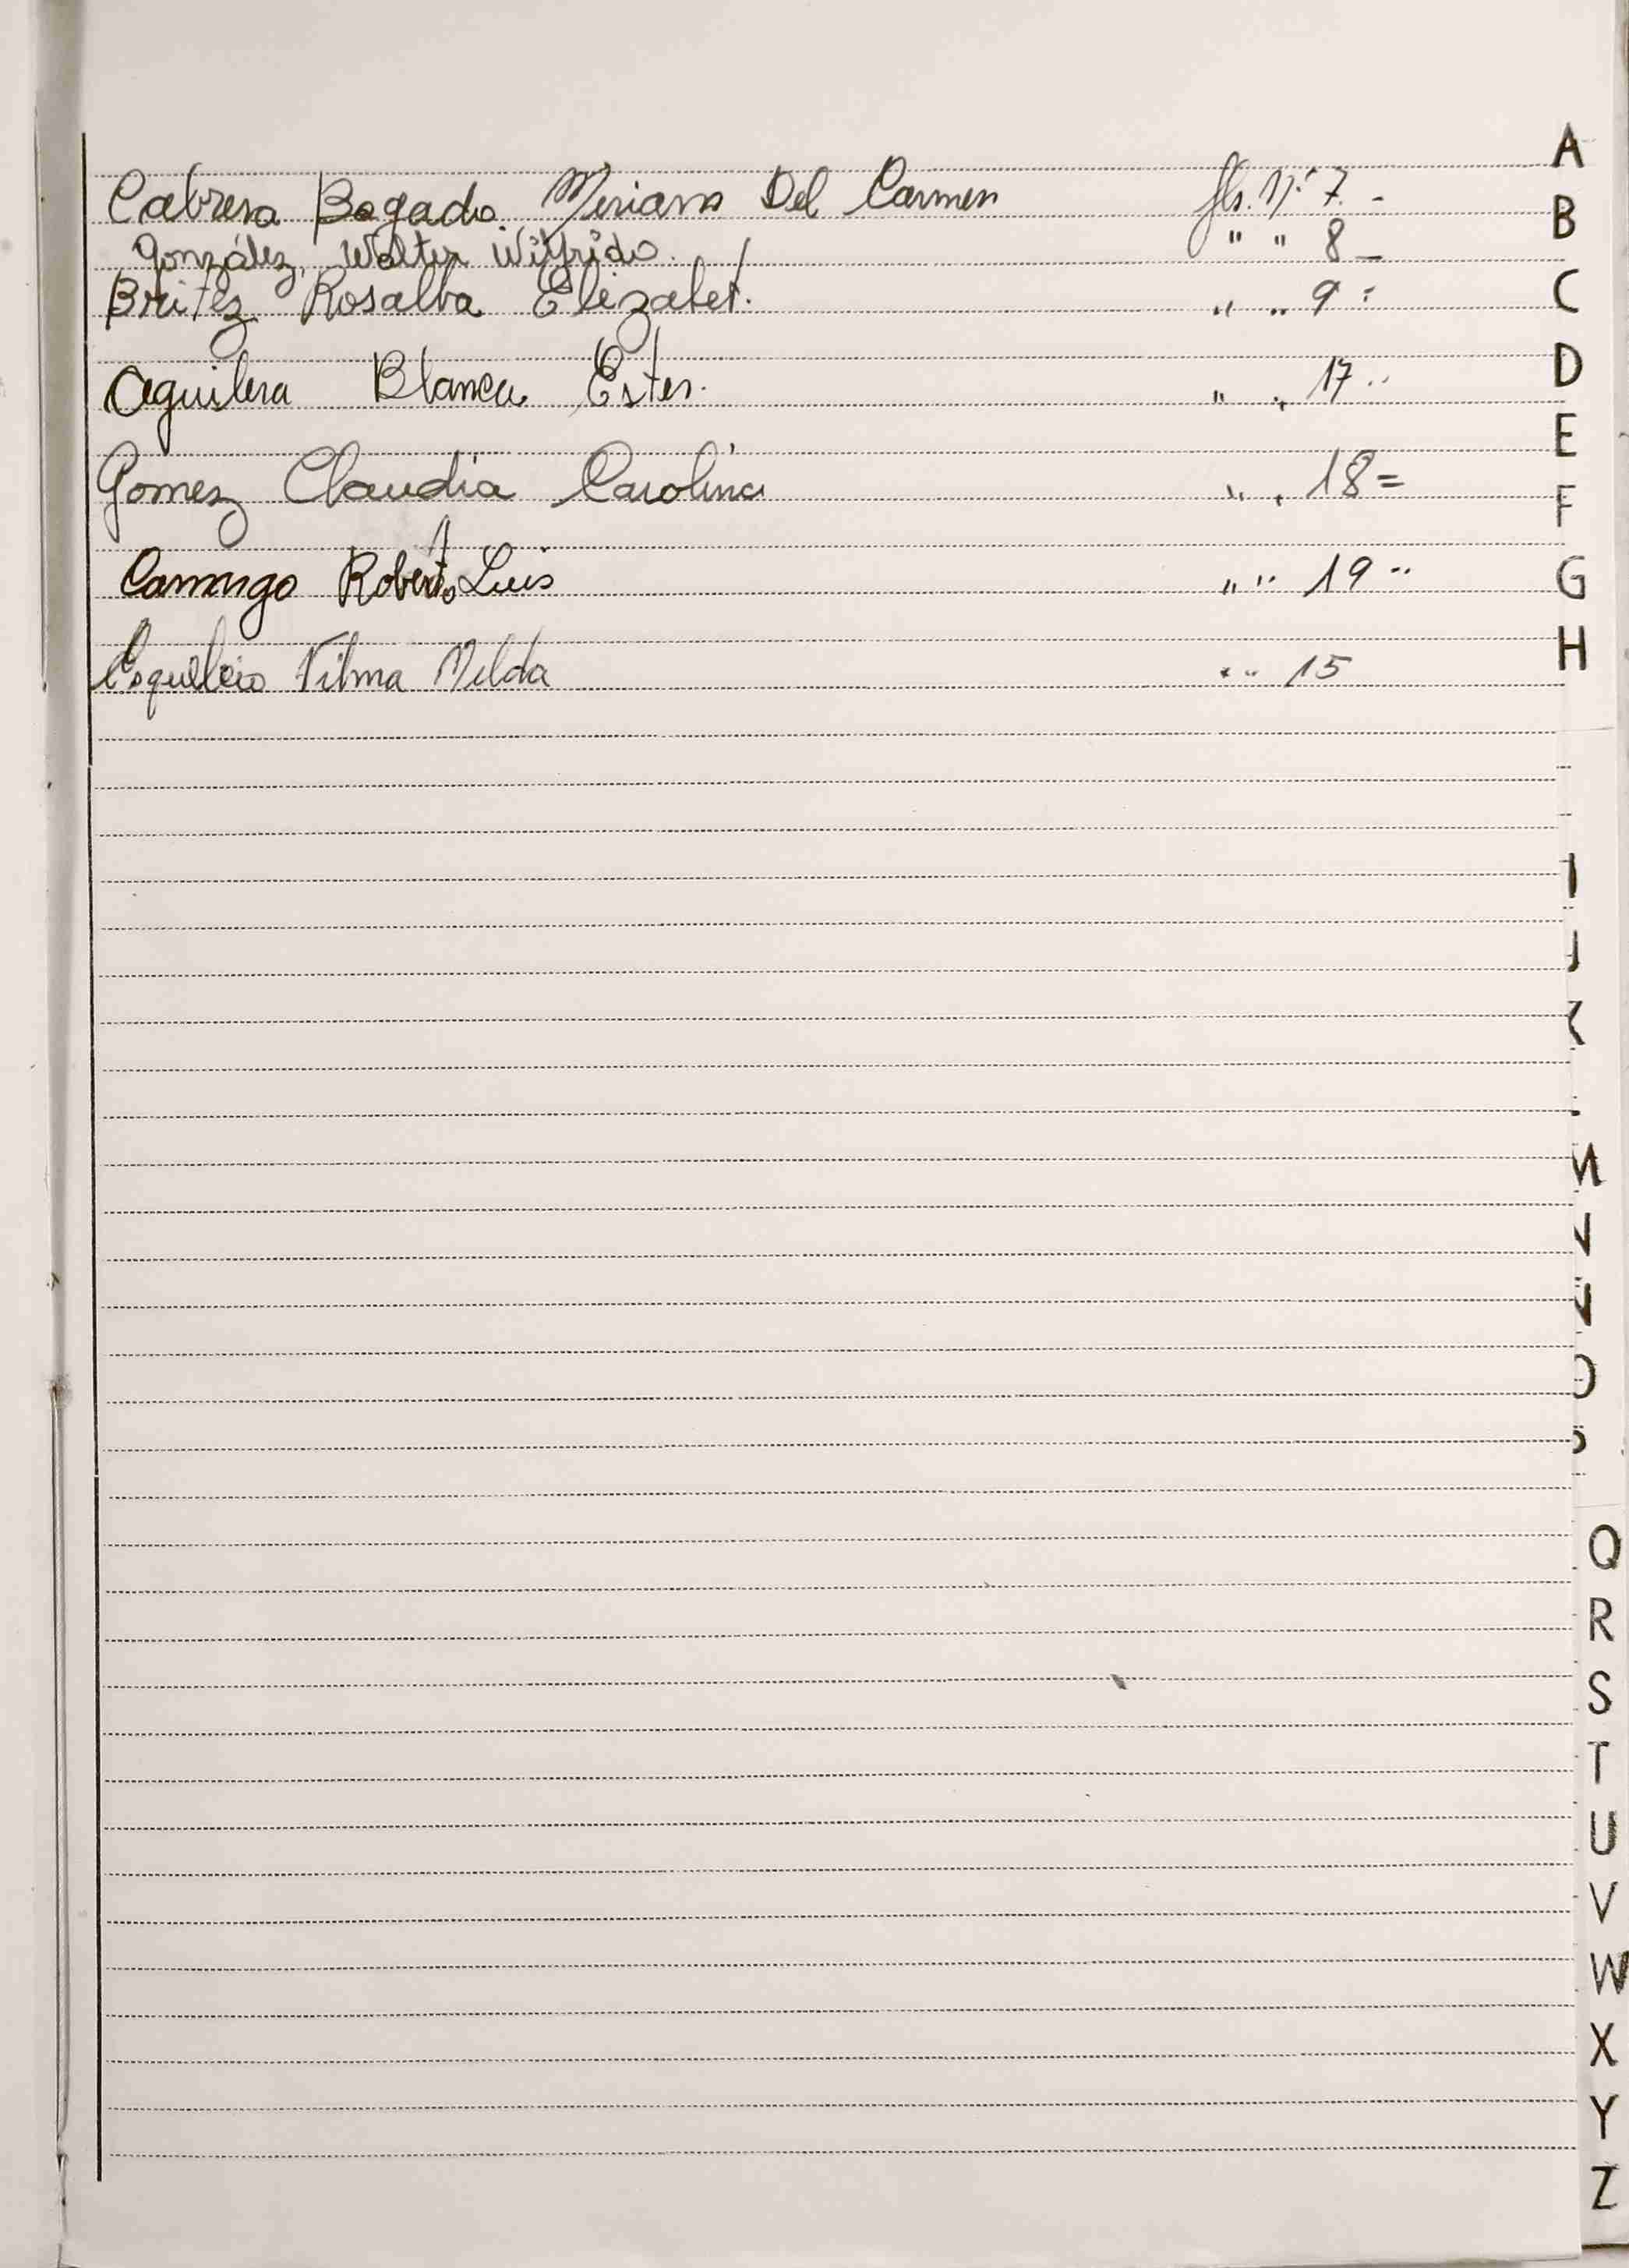 Cabrera Bogado Miriam Del Carmen fls. Nº 7. -
González, Walter Wilfrido. " " 8 _
Britez Rosalba Elizabet. " " 9 =
Aguilera Blanca Ester. " " 17 ..
Gomez Claudia Carolina " " 18 =
Camargo Roberto Luis " " 19 ..
Vilma Nilda " " 15
A
B
C
D
E
F
G
H
I
J
K
M
N
Ñ
O
Q
R
S
T
U
V
W
X
Y
Z